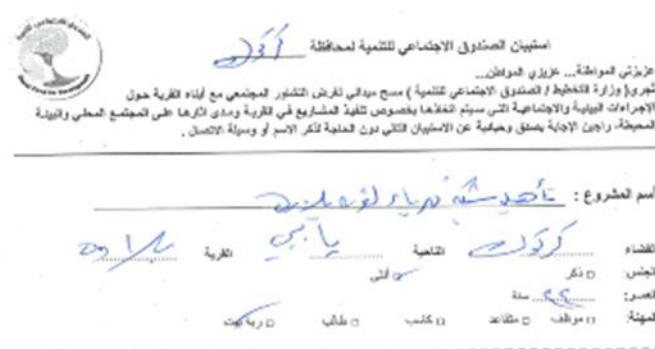 استبيان الصندوق الاجتماعي للتنمية لمحافظة كركوك
عزيزتي المواطنة... عزيزي المواطن...
تجري وزارة التخطيط / الصندوق الاجتماعي للتنمية ) مسح ميداني لغرض التشاور المجتمعي مع أبناء القرية حول
الإجراءات البيئية والاجتماعية التي سيتم اتخاذها بخصوص تنفيذ المشاريع في القرية ومدى اثارها على المجتمع المحلي والبيئة
المحيطة، راجين الإجابة بصدق وحيادية عن الاستبيان التالي دون الحاجة لذكر الاسم أو وسيلة الاتصال .
أسم المشروع : تأهيل شبكة كهرباء لقرية
القضاء كركوك الناحية يايجي القرية
الجنس: □ ذكر □ أنثى
العمر: ٢٢ سنة
المهنة: □ موظف □ متقاعد □ كاسب □ طالب □ ربة بيت